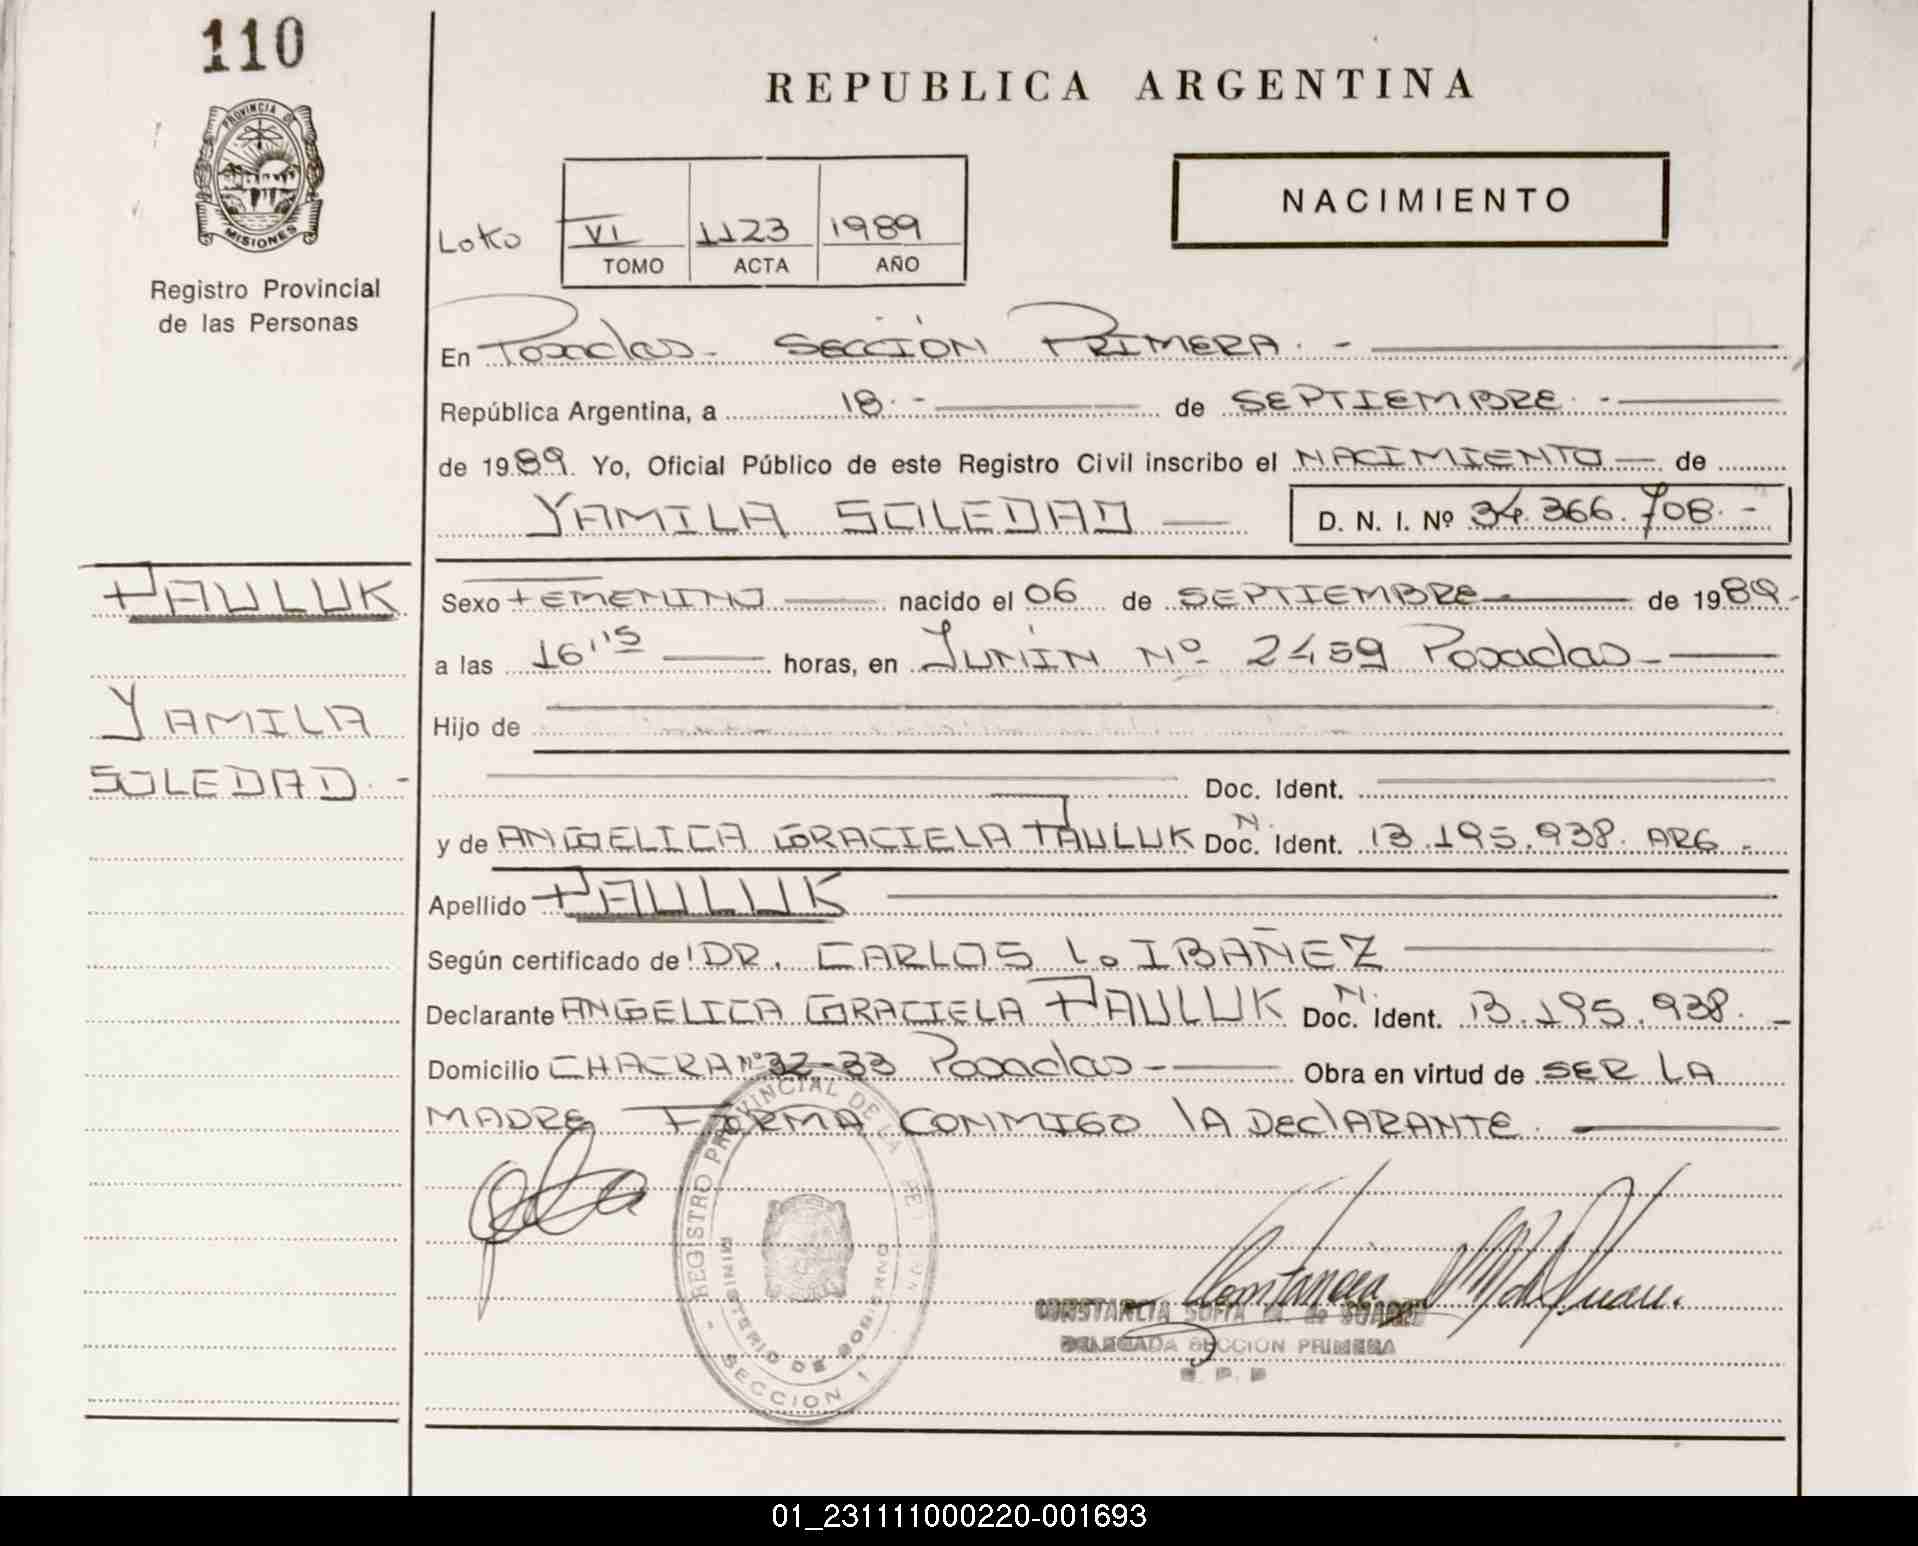 110
REPUBLICA ARGENTINA
PROVINCIA DE
MISIONES
Registro Provincial
de las Personas
NACIMIENTO
VI 1123 1989
TOMO ACTA AÑO
En Posadas - SECCIÓN PRIMERA. -
República Argentina, a 18. - de SEPTIEMBRE. -
de 1989. Yo, Oficial Público de este Registro Civil inscribo el NACIMIENTO de
YAMILA SOLEDAD D. N. I. Nº 34.366.708. -
PAULUK
YAMILA
SOLEDAD. -
Sexo FEMENINO nacido el 06 de SEPTIEMBRE de 1989-
a las 16'15 horas, en JUNÍN Nº 2459 Posadas -
Hijo de
Doc. Ident.
y de ANGELICA GRACIELA PAULUK Doc. N. Ident. 13.195.938. ARG -
Apellido PAULUK
Según certificado de DR. CARLOS L. IBAÑEZ
Declarante ANGELICA GRACIELA PAULUK Doc. N. Ident. 13.195.938. -
Domicilio CHACRA Nº 32-33 Posadas - Obra en virtud de SER LA
MADRE FIRMA CONMIGO LA DECLARANTE.
REGISTRO PROVINCIAL DE LA
MINISTERIO DE GOBIERNO
SECCION 1
CONSTANCIA SOFIA M. de SUAREZ
DELEGADA SECCION PRIMERA
01_231111000220-001693